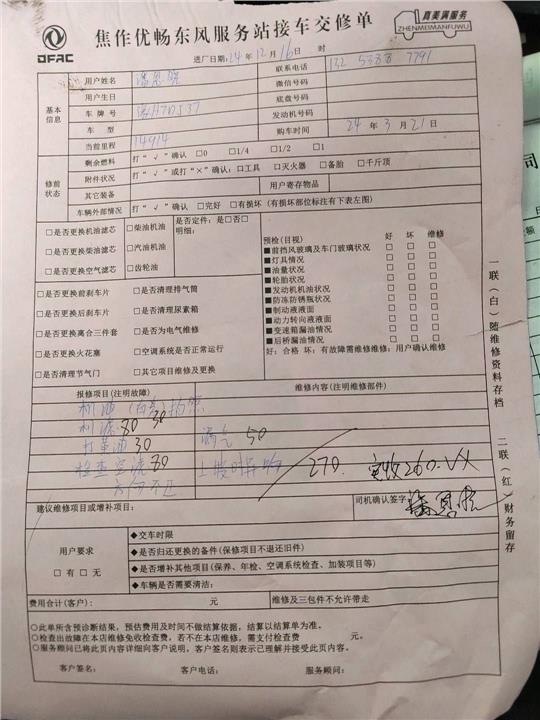 DFAC
焦作优畅东风服务站接车交修单
真美满服务
ZHENMEIMANFUWU
进厂日期: 24 年 12 月 16 日 时
基本信息
用户姓名
联系电话 132 5388 7791
用户生日
微信号码
车牌号
底盘号码
车型
发动机号码
当前里程 14914
购车时间 24 年 3 月 21 日
修前状态
剩余燃料 打“√”确认 □0 □1/4 □1/2 □1
附件状况 打“√”或打“×”确认:□工具 □灭火器 □备胎 □千斤顶
其它装备
用户寄存物品
车辆外部情况 打“√”确认 □完好 □有损坏(有损坏部位标注有下表左图)
□是否更换机油滤芯 □柴油机油
□是否更换柴油滤芯 □汽油机油
□是否更换空气滤芯 □齿轮油
是否定件:是□否□
明细:
□是否更换前刹车片 □是否清理排气筒
□是否更换后刹车片 □是否清理尿素箱
□是否更换离合三件套 □是否为电气维修
□是否更换火花塞 □空调系统是否正常运行
□是否清理节气门 □其它项目维修及更换
预检(目视) 好 坏 维修
■前挡风玻璃及车门玻璃状况 □ □ □
■灯具情况 □ □ □
■油量状况 □ □ □
■轮胎状况 □ □ □
■发动机机油状况 □ □ □
■防冻防锈瓶状况 □ □ □
■制动液液面 □ □ □
■动力转向液液面 □ □ □
■变速箱漏油情况 □ □ □
■后桥漏油情况 □ □ □
好:合格 坏:有故障需维修维修:用户确认维修
报修项目(注明故障)
维修内容(注明维修部件)
机油
机滤 80 30
打黄油 30
50
检查 80
270. 实收260.
建议维修项目或增补项目:
司机确认签字:
用户要求
□有 □无
◆交车时限
◆是否归还更换的备件(保修项目不退还旧件)
◆是否增补其他项目(保养、年检、空调系统检查、加装项目等)
◆车辆是否需要清洁:
费用合计(客户): 元
维修及三包件不允许带走
○此单所含预诊断结果,预估费用及时间不做结算依据,结算以结算单为准。
○检查出故障在本店维修免收检查费,若不在本店维修,需支付检查费 元。
○服务顾问已将此页内容详细向客户说明,客户签名则表示已理解并接受此页内容。
客户签名: 客户电话: 服务顾问:
一联(白)随维修资料存档
二联(红)财务留存